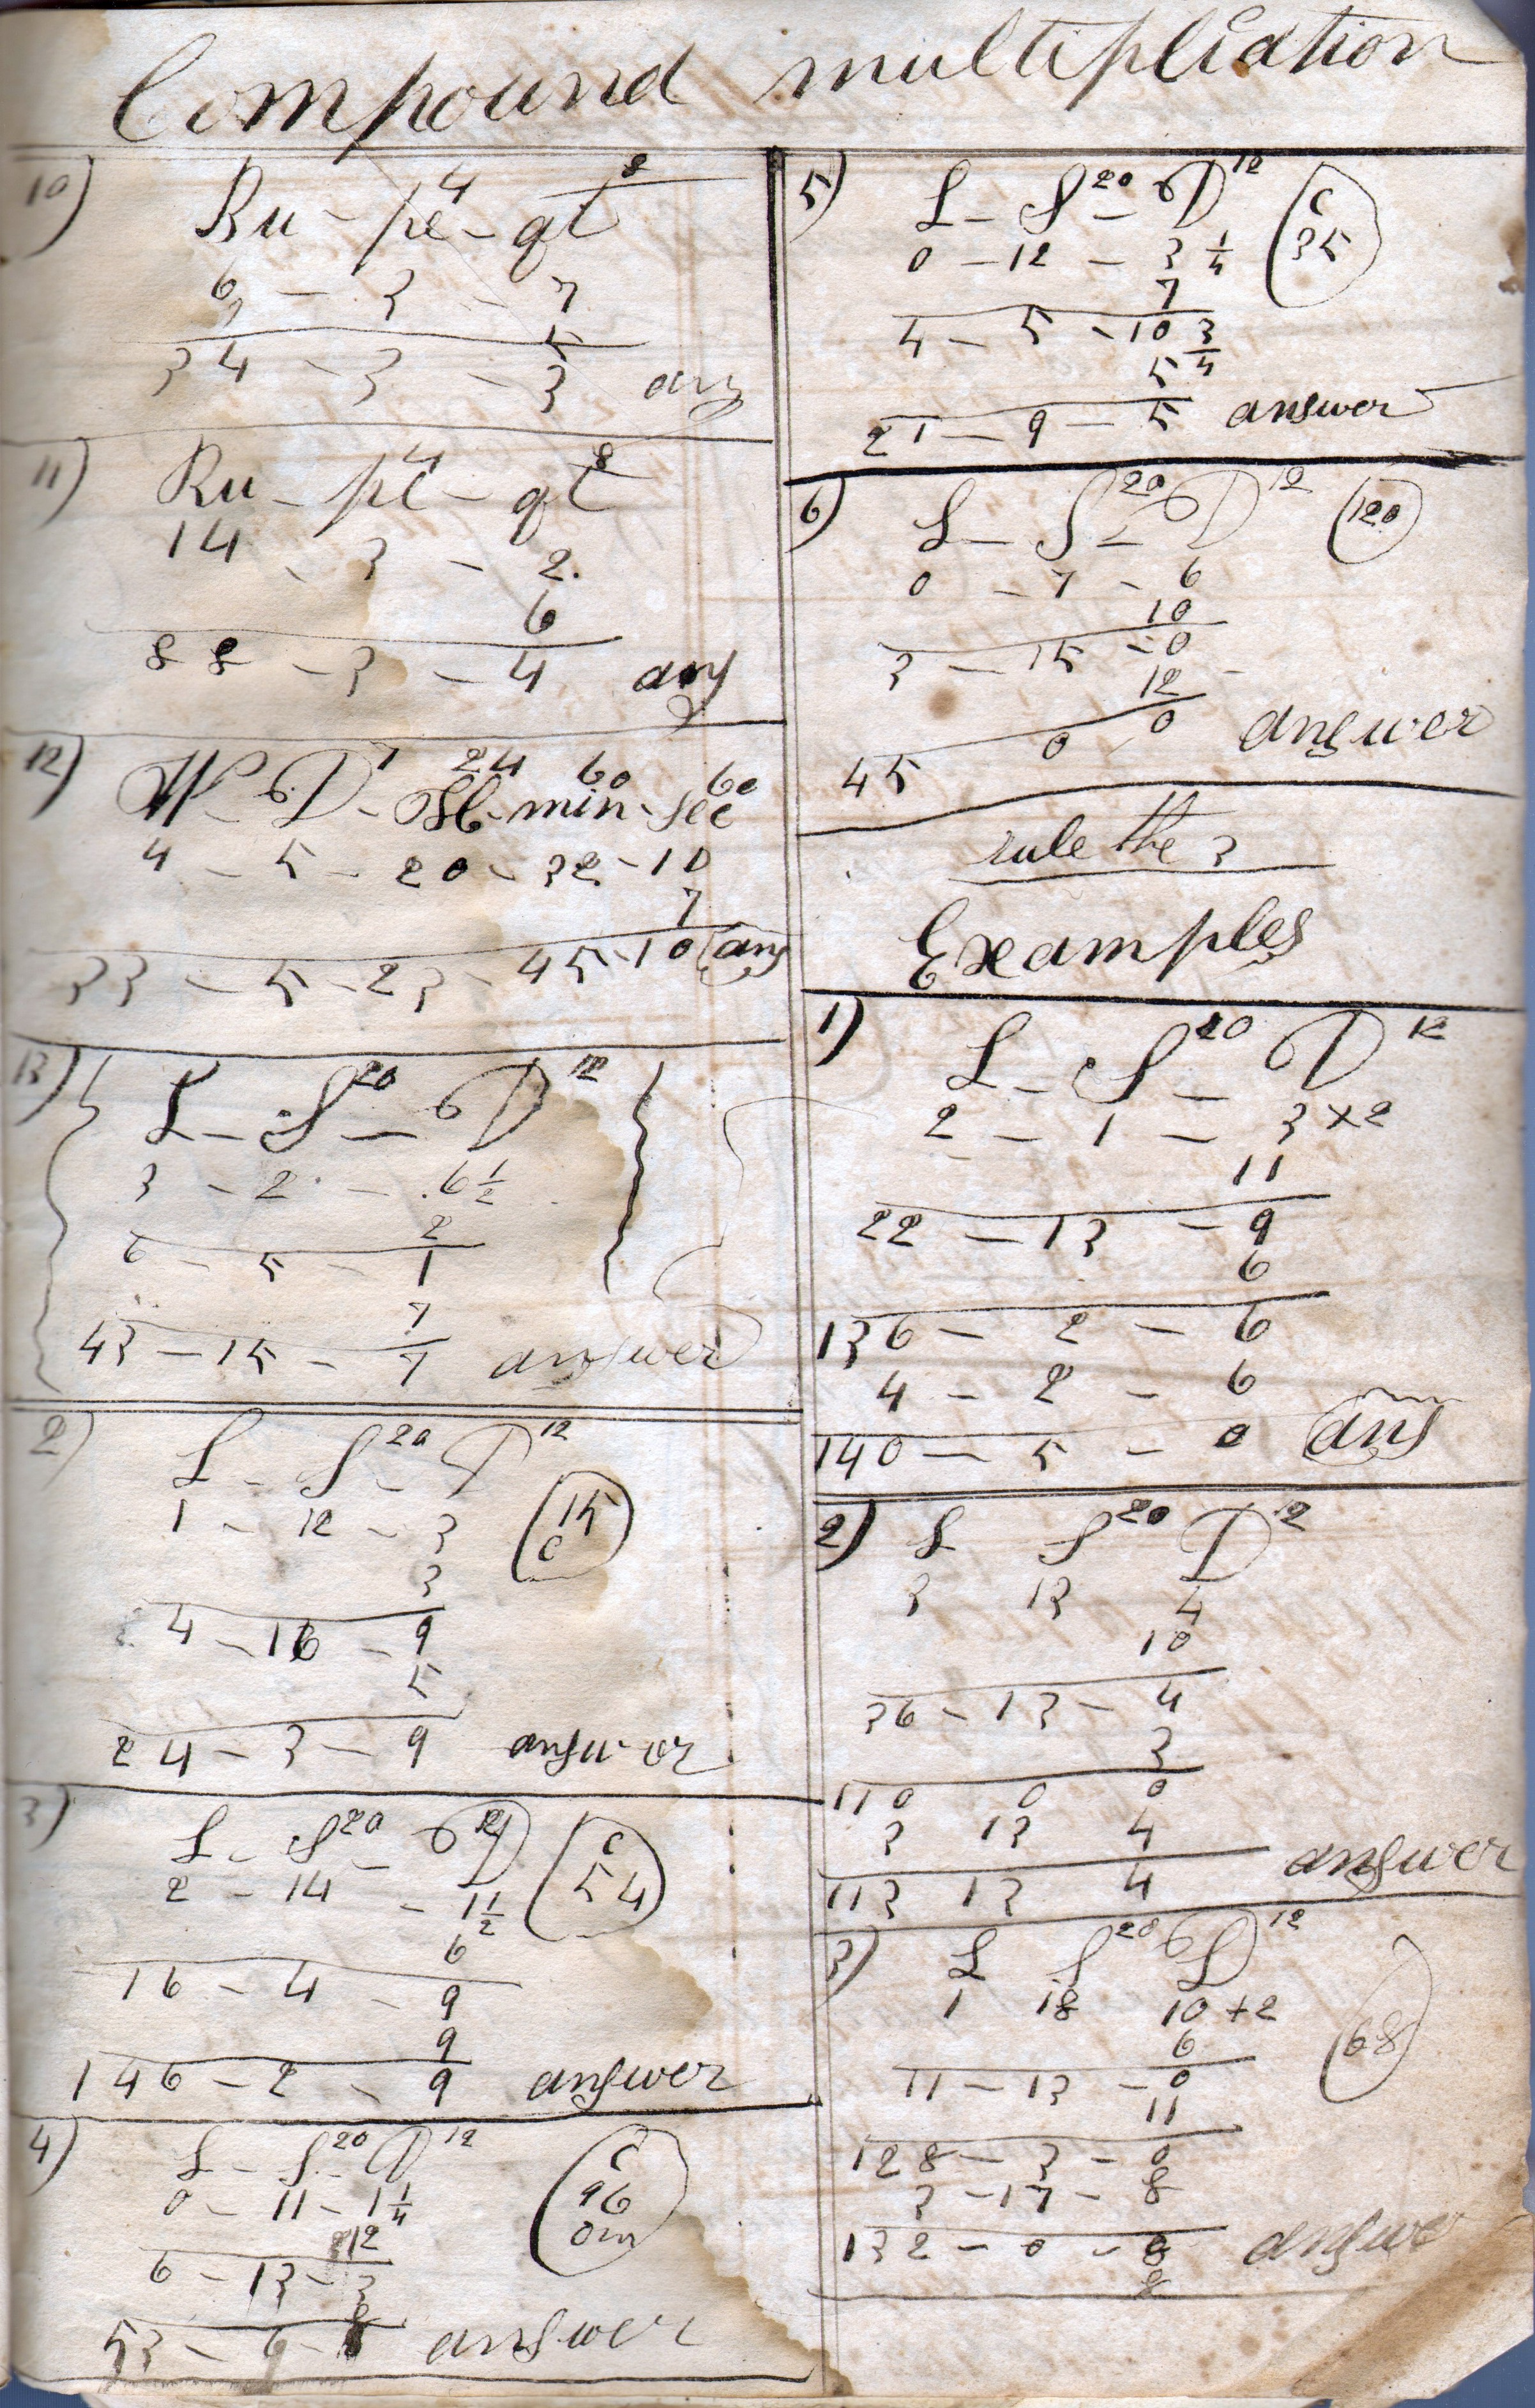 Compound multipliation
10)
Bu - pe 4 - qt 8
6 - 3 - 7
5
34 - 3 - 3 ans
11)
Bu - pe 4 - qt 8
14 - 3 - 2
6
88 - 3 - 4 ans
12)
W - D 7 - H 24 - min 60 - sec 60
4 - 5 - 20 - 32 - 10
7
33 - 5 - 23 - 45 - 10 ans
13)
L - S 20 - D 12
3 - 2 - 6 1/2
2
6 - 5 - 1
7
43 - 15 - 7 answer
2)
L - S 20 - D 12
1 - 12 - 3
15
c
3
4 - 16 - 9
5
24 - 3 - 9 answer
3)
L - S 20 - D 12
c
54
2 - 14 - 1 1/2
6
16 - 4 - 9
9
146 - 2 - 9 answer
4)
L - S 20 - D 12
c
96
0 - 11 - 1 1/4
12
6 - 13 - 3
8
53 - 6 - answer
5)
L - S 20 - D 12
c
35
0 - 12 - 3 1/4
7
4 - 5 - 10 3/4
5
21 - 9 - 5 answer
6)
L - S 20 - D 12
120
0 - 7 - 6
10
3 - 15 - 0
12
45 0 0 answer
rule the 3
Examples
1)
L - S 20 - D 12
2 - 1 - 3 × 2
11
22 - 13 - 9
6
136 - 2 - 6
4 - 2 - 6
140 - 5 - 0 ans
2)
L S 20 D 12
3 13 4
10
36 - 13 - 4
3
110 0 0
3 13 4
113 13 4 answer
3)
L S 20 D 12
1 18 10 + 2
68
6
11 - 13 - 0
11
128 - 3 - 0
3 - 17 - 8
132 - 0 - 8 answe
8